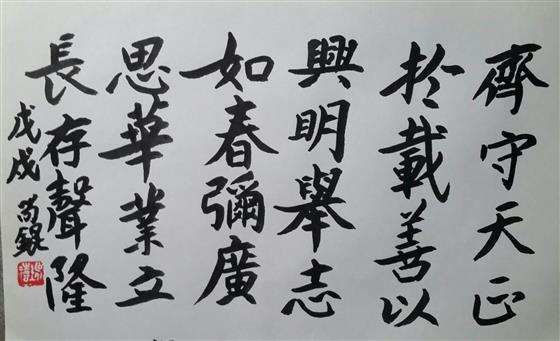 齊守天正
於載善以
興明舉志
如春彌廣
思華業立
長存聲隆
戊戌